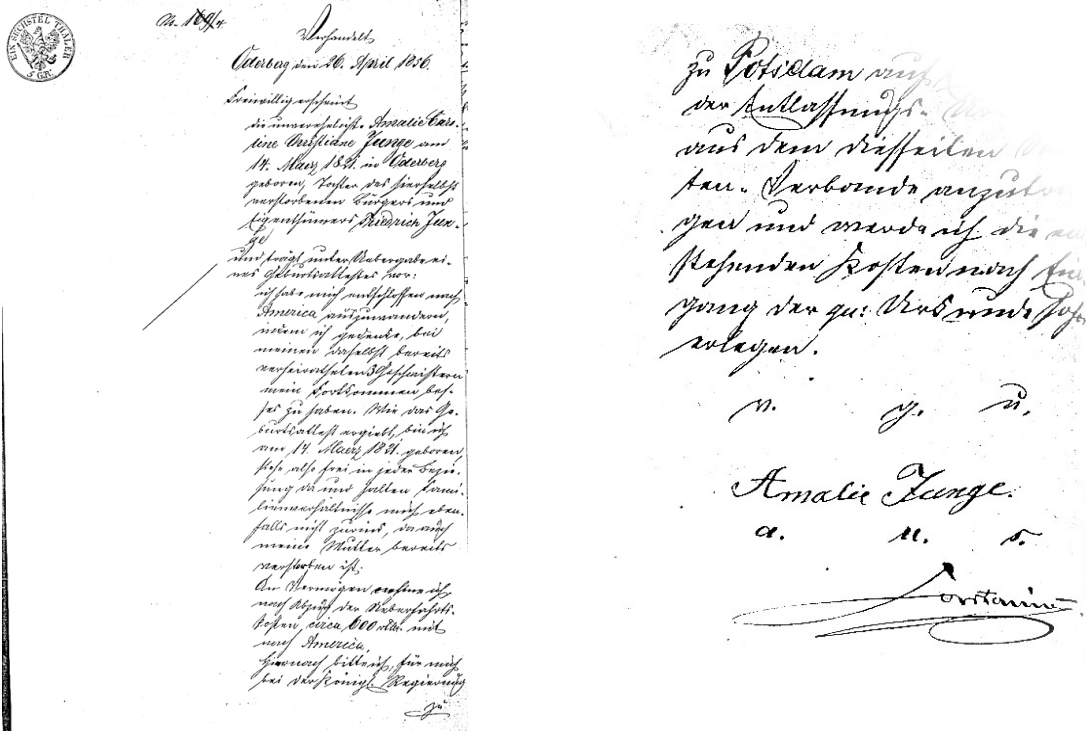 EIN SECHSTEL THALER
5 GR.
No. 169/4
Verhandelt
Oderberg den 26. April 1856.
Freiwillig erscheint
die unverehelichte Amalie Caro-
line Christiane Junge am
14. Maerz 1821. in Oderberg
geboren, Tochter des hierselbst
verstorbenen Bürgers und
Eigenthümers Friedrich Jun-
ge
und trägt unter Uebergabe ei-
nes Geburtsattestes vor:
ich habe mich entschlossen nach
America auszuwandern,
indem ich gedenke, bei
meinen daselbst bereits
verheiratheten 3 Geschwistern
mein Fortkommen bes-
ser zu haben. Wie das Ge-
burtsattest ergiebt, bin ich
am 14. Maerz 1821. geboren,
stehe also frei in jeder Bezie-
hung da und halten Fami-
lienverhältnisse mich eben-
falls nicht zurück, da auch
meine Mutter bereits
verstorben ist.
An Vermögen nehme ich
nach Abzug der Ueberfahrts-
kosten circa 600 rtlr. mit
nach America.
Hiernach bitte ich, für mich
bei der Königl. Regierung
zu
zu Potsdam auf
der Entlassungs-
aus dem diesseitigen
ten-Verbande anzutra-
gen und werde ich die
stehenden Kosten nach Ein-
gang der qu: Urkunde
erlegen.
v. g. u.
Amalie Junge.
a. u. s.